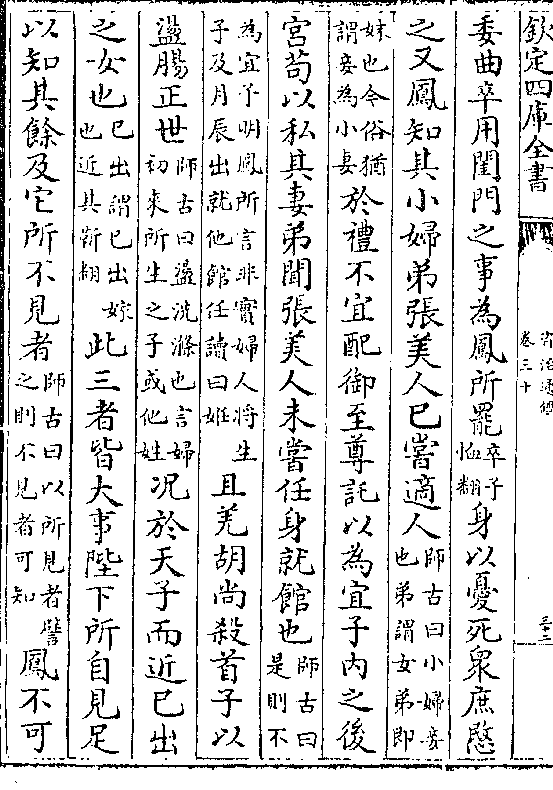 欽定四庫全書
資治通鑑
卷三十
三十二
委曲卒用閨門之事為鳳所罷卒子恤翻身以憂死衆庶愍
之又鳳知其小婦弟張美人已嘗適人師古曰小婦妾也弟謂女弟即
妹也今俗猶謂妾為小妻於禮不宜配御至尊託以為宜子内之後
宮苟以私其妻弟聞張美人未嘗任身就館也師古曰是則不
為宜子明鳳所言非實婦人將生子及月辰出就他館任讀曰姙且羌胡尚殺首子以
盪腸正世師古曰盪洗滌也言婦初來所生之子或他姓况於天子而近已出
之女也已出謂已出嫁也近其靳翻此三者皆大事陛下所自見足
以知其餘及它所不見者師古曰以所見者譬之則不見者可知鳳不可